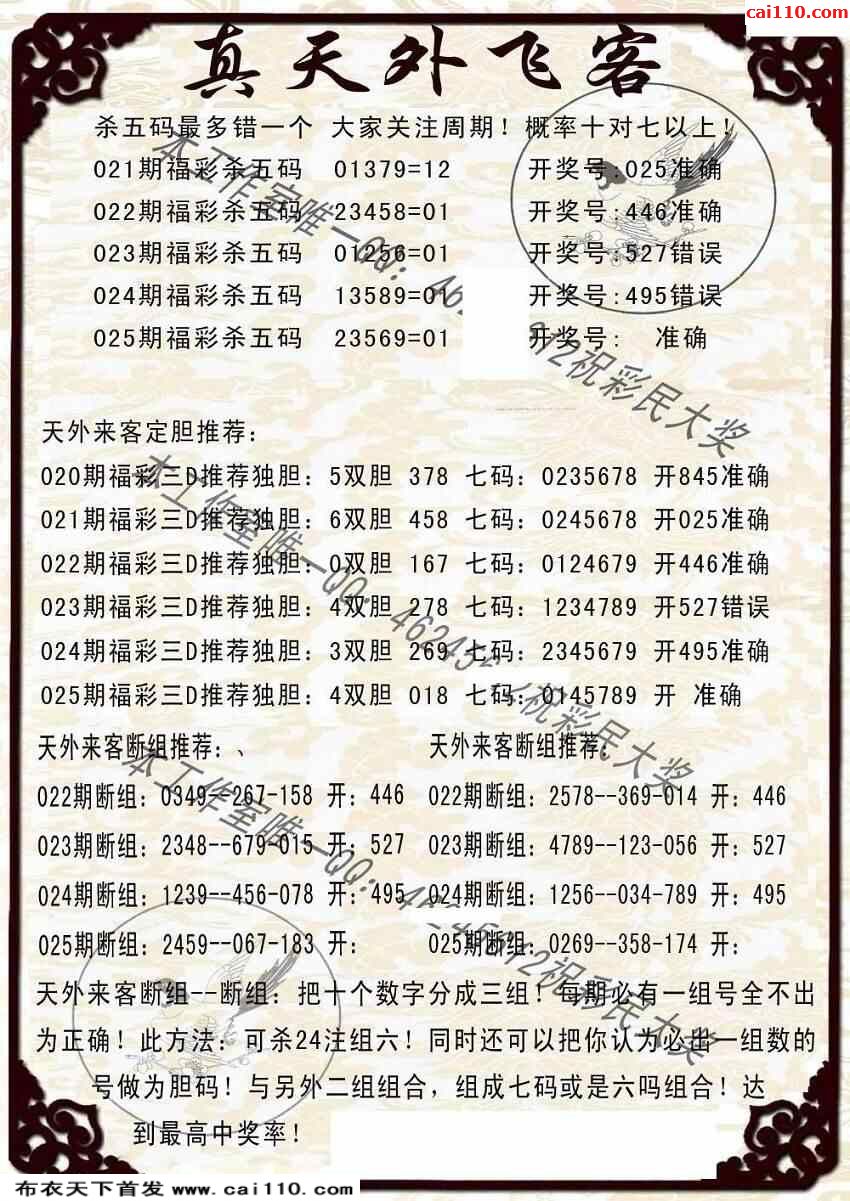 cai110.com
真天外飞客
杀五码最多错一个 大家关注周期！概率十对七以上！
021期福彩杀五码 01379=12 开奖号:025准确
022期福彩杀五码 23458=01 开奖号:446准确
023期福彩杀五码 01256=01 开奖号:527错误
024期福彩杀五码 13589=01 开奖号:495错误
025期福彩杀五码 23569=01 开奖号: 准确
天外来客定胆推荐：
020期福彩三D推荐独胆：5双胆 378 七码：0235678 开845准确
021期福彩三D推荐独胆：6双胆 458 七码：0245678 开025准确
022期福彩三D推荐独胆：0双胆 167 七码：0124679 开446准确
023期福彩三D推荐独胆：4双胆 278 七码：1234789 开527错误
024期福彩三D推荐独胆：3双胆 269 七码：2345679 开495准确
025期福彩三D推荐独胆：4双胆 018 七码：0145789 开 准确
天外来客断组推荐：、 天外来客断组推荐：
022期断组：0349--267-158 开：446 022期断组：2578--369-014 开：446
023期断组：2348--679-015 开：527 023期断组：4789--123-056 开：527
024期断组：1239--456-078 开：495 024期断组：1256--034-789 开：495
025期断组：2459--067-183 开： 025期断组：0269--358-174 开：
天外来客断组--断组：把十个数字分成三组！每期必有一组号全不出
为正确！此方法：可杀24注组六！同时还可以把你认为必出一组数的
号做为胆码！与另外二组组合，组成七码或是六吗组合！达
到最高中奖率！
本工作室唯一QQ：
祝彩民大奖
本工作室唯一QQ：
祝彩民大奖
本工作室唯一QQ：
祝彩民大奖
布衣天下首发 www.cai110.com